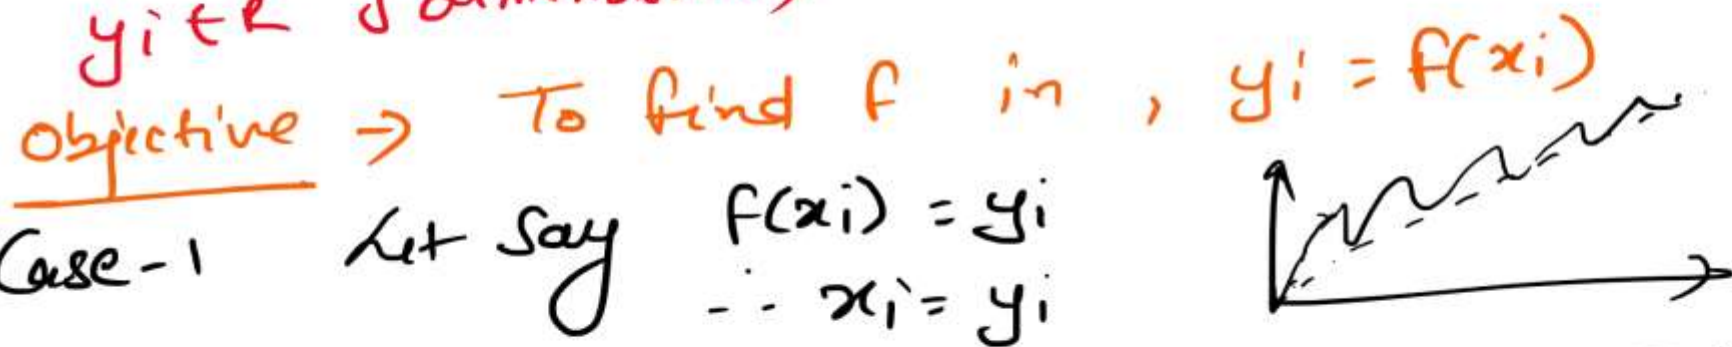 yi ∈ R
objective → To find f in , yi = f(xi)
Case-1 Let say f(xi) = yi
∴ xi = yi